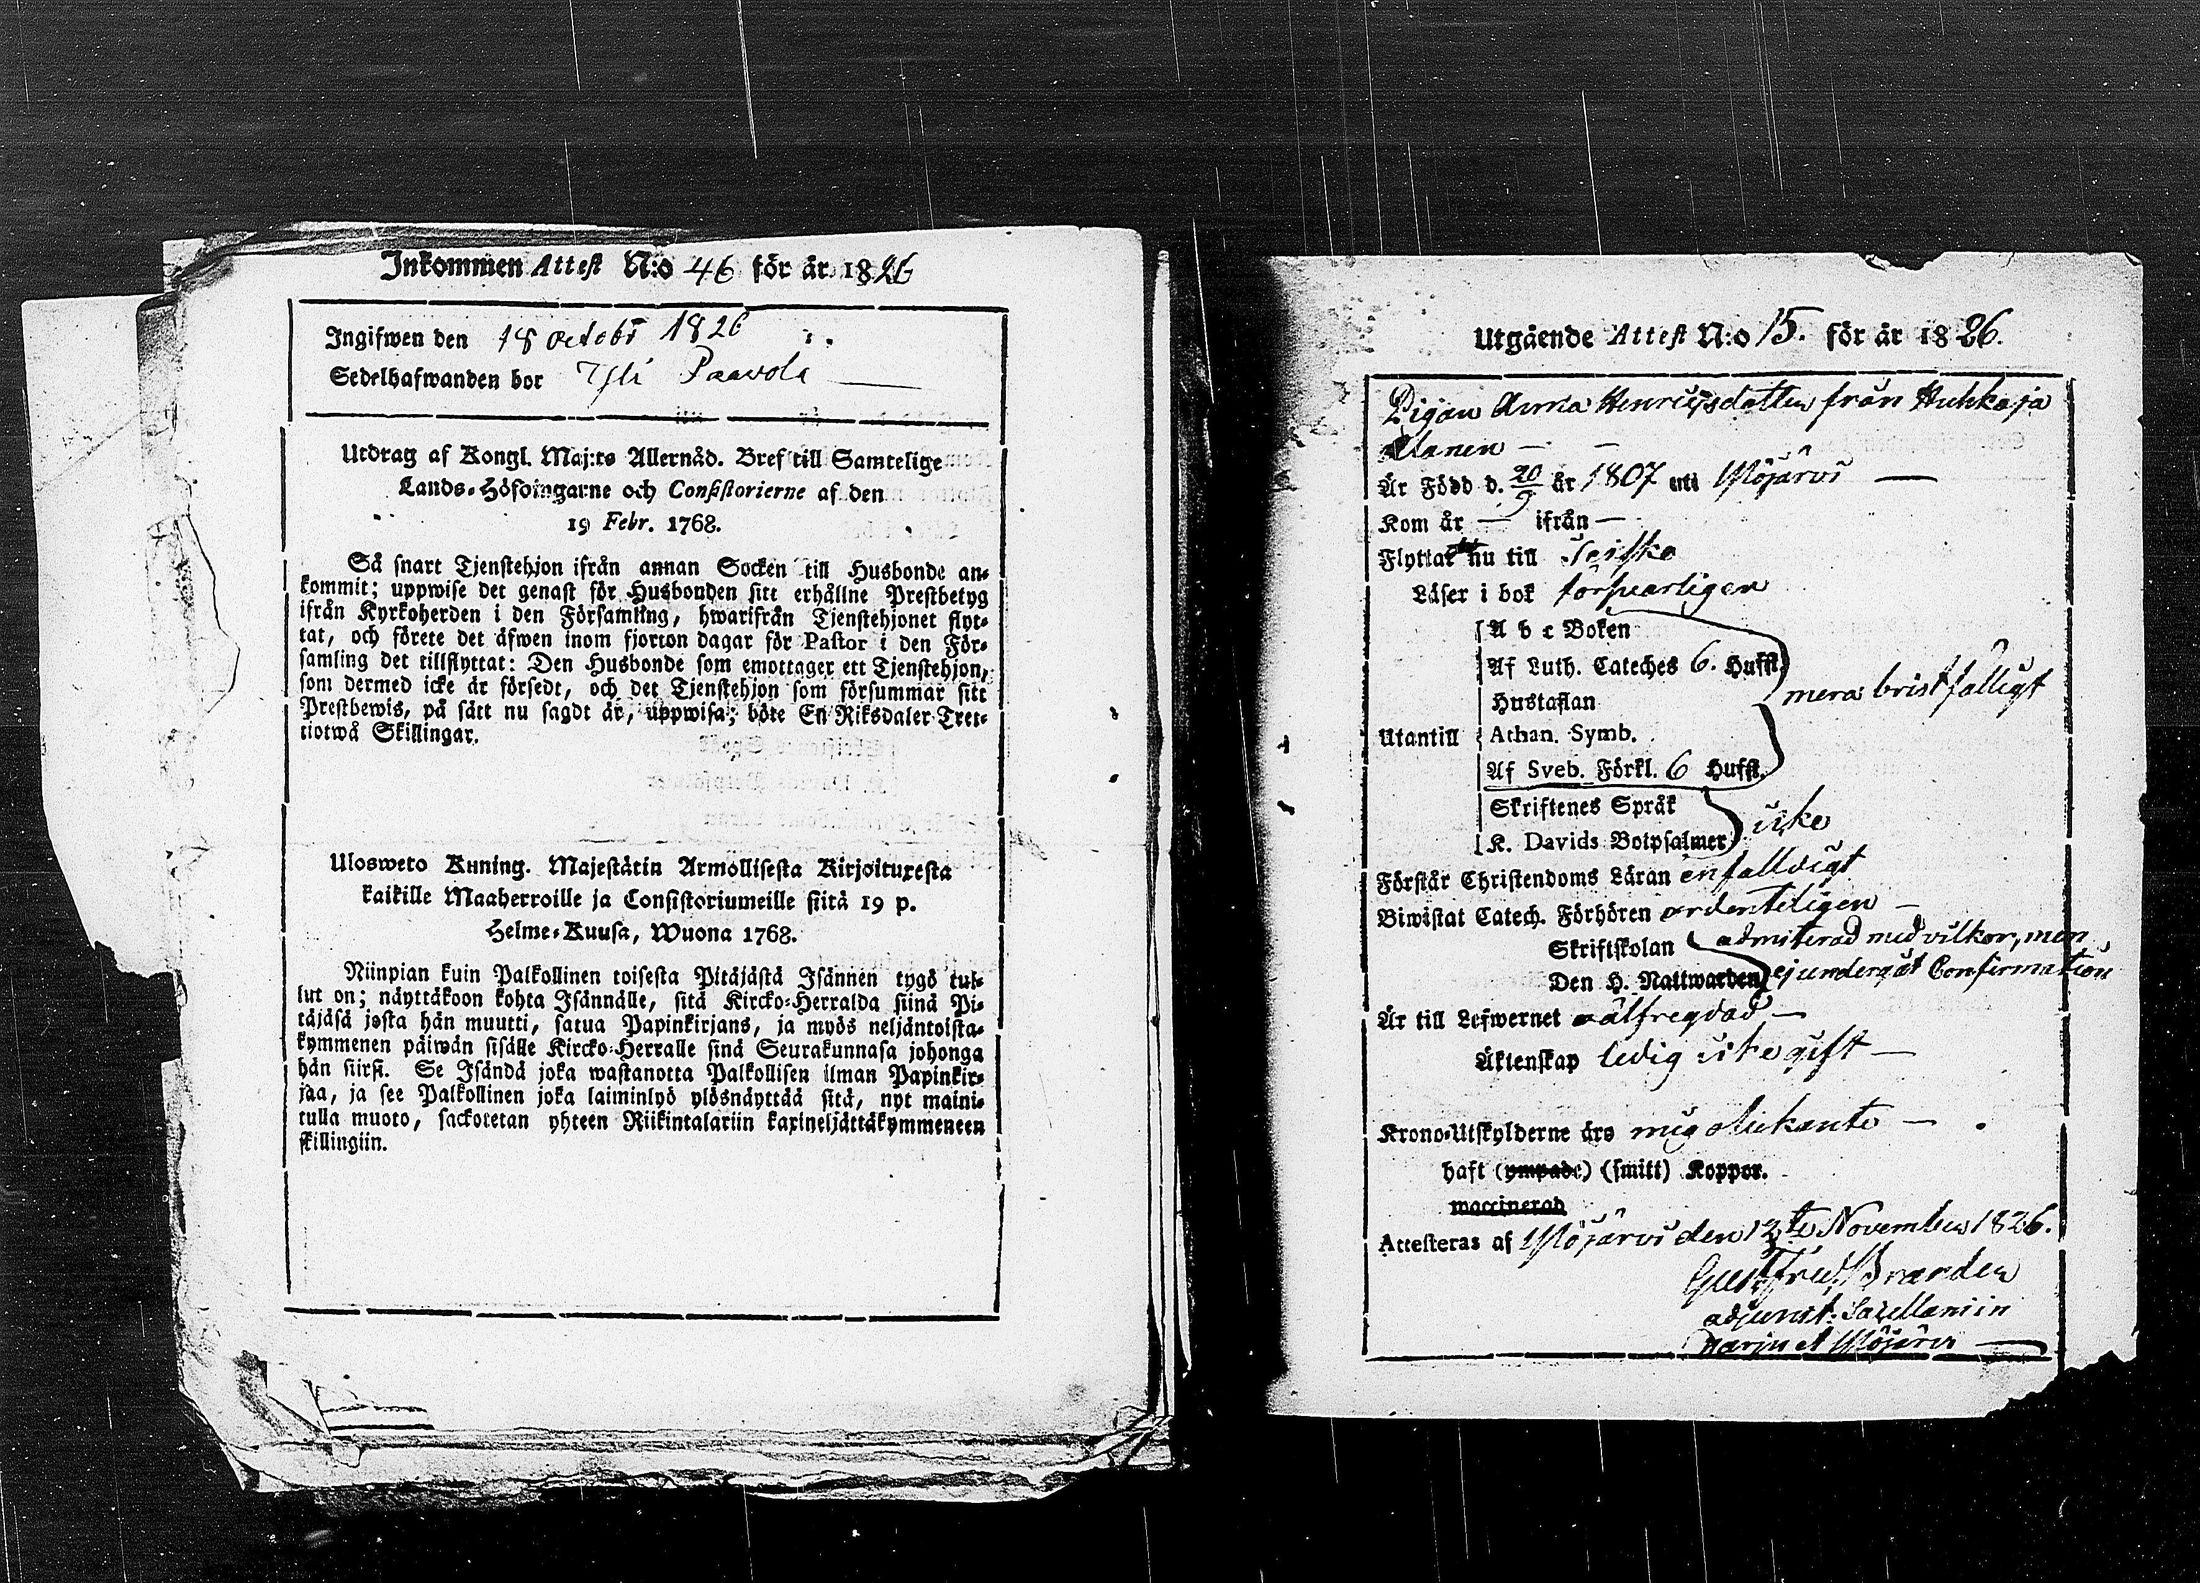 Inkommen Attest N:o 46 för år 1826
Ingifwen den 18 octobr 1826
Sedelhafwanden bor Yli Paavola
Utdrag af Kongl. Maj:ts Allernåd. Bref till Samtelige
Lands-Höfdingarne och Consistorierne af den
19 Febr. 1768.
Så snart Tjenstehjon ifrån annan Socken till Husbonde an-
kommit; uppwise det genast för Husbonden sitt erhållne Prestbetyg
ifrån Kyrkoherden i den Församling, hwarifrån Tjenstehjonet flyt-
tat, och förete det äfwen inom fjorton dagar för Pastor i den För-
samling det tillflyttat: Den Husbonde som emottager ett Tjenstehjon,
som dermed icke är försedt, och det Tjenstehjon som försummar sitt
Prestbewis, på sätt nu sagdt är, uppwisa; böte En Riksdaler Tret-
tiotwå Skillingar.
Ulosweto Kuning. Majestätin Armollisesta Kirjoituxesta
kaikille Maaherroille ja Consistoriumeille siitä 19 p.
Helme-Kuusa, Wuona 1768.
Niinpian kuin Palkollinen toisesta Pitäjästä Isännen tygö tul-
lut on; näyttäkoon kohta Isännälle, sitä Kircko-Herralda siinä Pi-
täjäsä josta hän muutti, satua Papinkirjans, ja myös neljäntoista-
kymmenen päiwän sisälle Kircko-Herralle sinä Seurakunnasa johonga
hän siirsi. Se Isändä joka wastanotta Palkollisen ilman Papinkir-
jaa, ja see Palkollinen joka laiminlyö ylösnäyttää sitä, nyt maini-
tulla muoto, sackotetan yhteen Riikintalariin kaxineljättäkymmeneen
skillingiin.
Utgående Attest N:o 15. för år 1826.
Pigan Anna Henricsdotter från Huhkaja
Alanen
Är Född d. 20/9 år 1807 uti Ylöjärvi
Kom år — ifrån —
Flyttar nu till
Läser i bok försvarligen
A b c Boken
Af Luth. Cateches 6. Hufst.
Hustaflan
mera bristfälligt
Utantill Athan. Symb.
Af Sveb. Förkl. 6 Hufst.
Skriftenes Språk
icke
K. Davids Botpsalmer
Förstår Christendoms Läran enfalldigt
Biwistat Catech. Förhören ordenteligen
Skriftskolan admiterad med vilkor, men
Den H. Nattwarden ej undergåt Confirmation
Är till Lefwernet välfregdad
Äktenskap ledig icke gift
Krono-Utskylderne äro mig obekante
haft (ympade) (smitt) Koppor.
waccinerad
Attesteras af Ylöjärvi den 12te November 1826.
Gust. Fred. Brander
adjunct: Sacellani in
Harju et Ylöjärvi